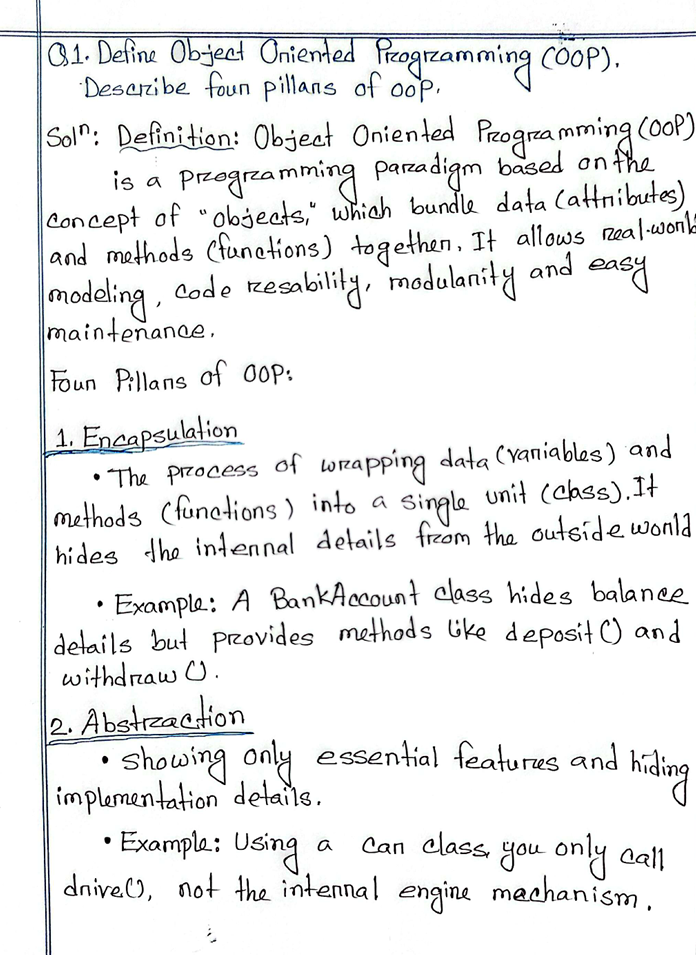 Q1. Define Object Oriented Programming (OOP).
Describe four pillars of OOP.
Solⁿ: Definition: Object Oriented Programming (OOP)
is a programming paradigm based on the
concept of "objects," which bundle data (attributes)
and methods (functions) together. It allows real-world
modeling, code resability, modularity and easy
maintenance.
Four Pillars of OOP:
1. Encapsulation
• The process of wrapping data (variables) and
methods (functions) into a single unit (class). It
hides the internal details from the outside world
• Example: A BankAccount class hides balance
details but provides methods like deposit() and
withdraw().
2. Abstraction
• Showing only essential features and hiding
implementation details.
• Example: Using a car class, you only call
drive(), not the internal engine mechanism.